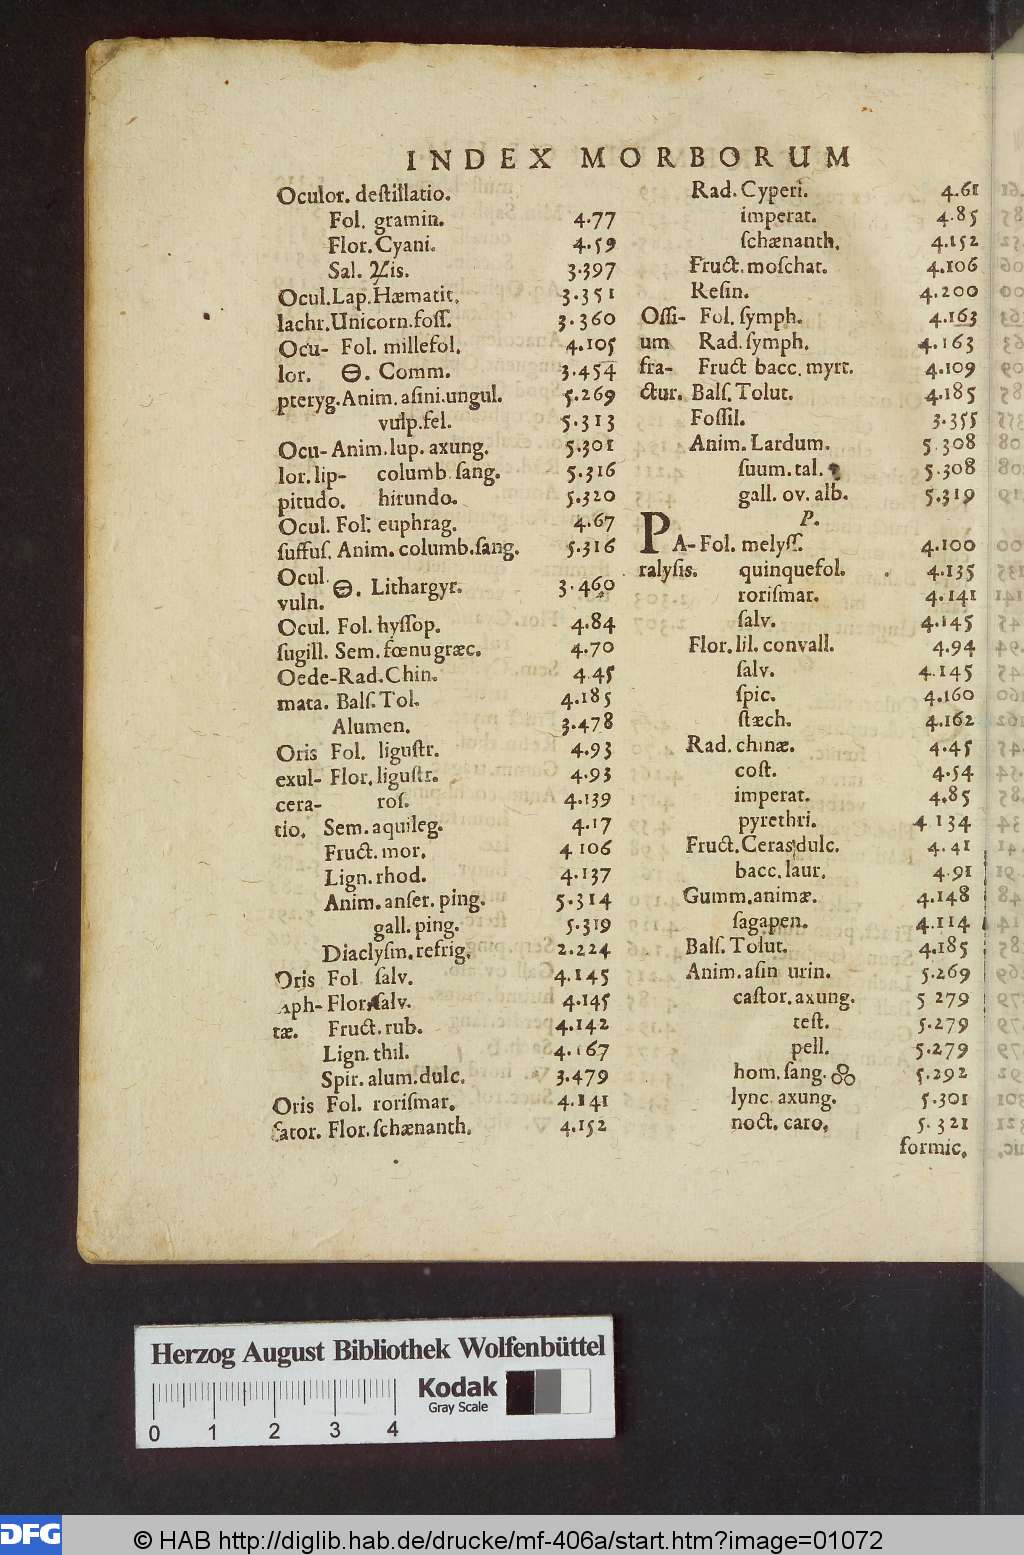 INDEX MORBORUM
Oculor. deſtillatio.
Fol. gramin. 4.77
Flor. Cyani. 4.59
Sal. ♃is. 3.397
Ocul. Lap. Hæmatit. 3.351
lachr. Unicorn. foſſ. 3.360
Ocu- Fol. millefol. 4.105
lor. ⊖. Comm. 3.454
pteryg. Anim. aſini. ungul. 5.269
vulp. fel. 5.313
Ocu- Anim. lup. axung. 5.301
lor. lip- columb. ſang. 5.316
pitudo. hirundo. 5.320
Ocul. Fol. euphrag. 4.67
ſuffuſ. Anim. columb. ſang. 5.316
Ocul.
vuln. ⊖. Lithargyr. 3.460
Ocul. Fol. hyſſop. 4.84
ſugill. Sem. fœnugræc. 4.70
Oede- Rad. Chin. 4.45
mata. Balſ. Tol. 4.185
Alumen. 3.478
Oris Fol. liguſtr. 4.93
exul- Flor. liguſtr. 4.93
cera- roſ. 4.139
tio. Sem. aquileg. 4.17
Fruct. mor. 4 106
Lign. rhod. 4.137
Anim. anſer. ping. 5.314
gall. ping. 5.319
Diaclyſm. refrig. 2.224
Oris Fol ſalv. 4.145
aph- Flor. ſalv. 4.145
tæ. Fruct. rub. 4.142
Lign. thil. 4.167
Spir. alum. dulc. 3.479
Oris Fol. roriſmar. 4.141
fator. Flor. ſchænanth. 4.152
Rad. Cyperi. 4.61
imperat. 4.85
ſchænanth. 4.152
Fruct. moſchat. 4.106
Reſin. 4.200
Oſſi- Fol. ſymph. 4.163
um Rad. ſymph. 4.163
fra- Fruct bacc. myrt. 4.109
ctur. Balſ. Tolut. 4.185
Foſſil. 3.355
Anim. Lardum. 5.308
ſuum. tal. 5.308
gall. ov. alb. 5.319
P.
PA- Fol. melyſſ. 4.100
ralyſis. quinquefol. 4.135
roriſmar. 4.141
ſalv. 4.145
Flor. lil. convall. 4.94
ſalv. 4.145
ſpic. 4.160
ſtæch. 4.162
Rad. chinæ. 4.45
coſt. 4.54
imperat. 4.85
pyrethri. 4 134
Fruct. Ceras dulc. 4.41
bacc. laur. 4.91
Gumm. animæ. 4.148
ſagapen. 4.114
Balſ. Tolut. 4.185
Anim. aſin urin. 5.269
caſtor. axung. 5 279
teſt. 5.279
pell. 5.279
hom. ſang. 5.292
lync. axung. 5.301
noct. caro. 5.321
formic.
Herzog August Bibliothek Wolfenbüttel
Kodak
Gray Scale
0 1 2 3 4
DFG © HAB http://diglib.hab.de/drucke/mf-406a/start.htm?image=01072